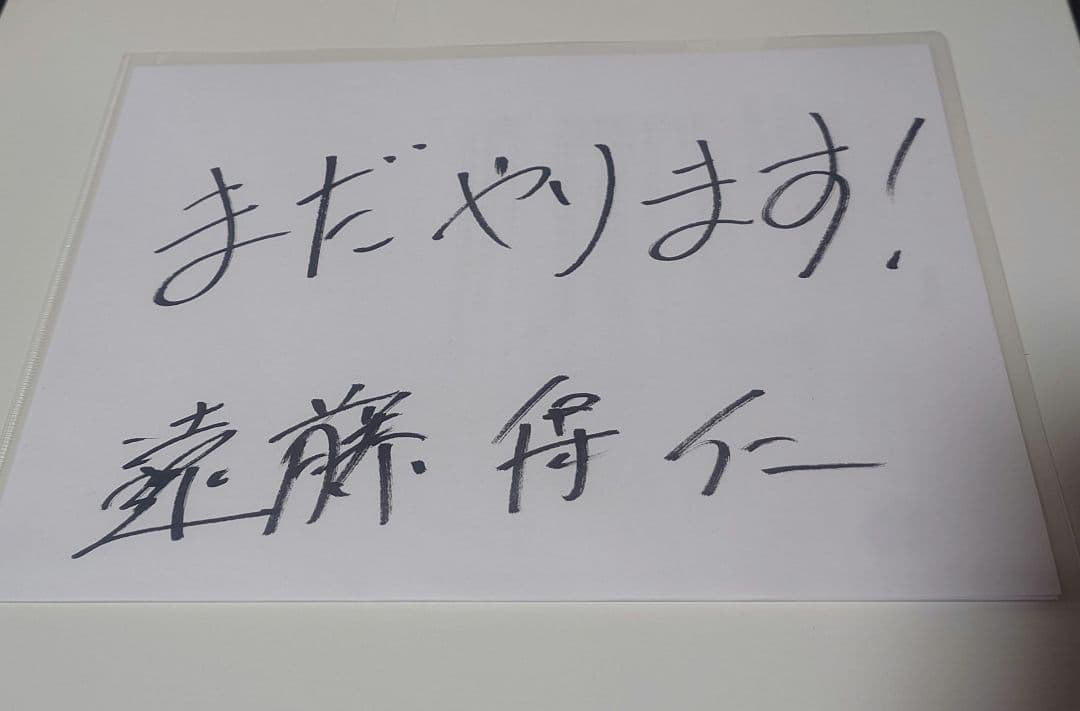 まだやります!
遠藤保仁